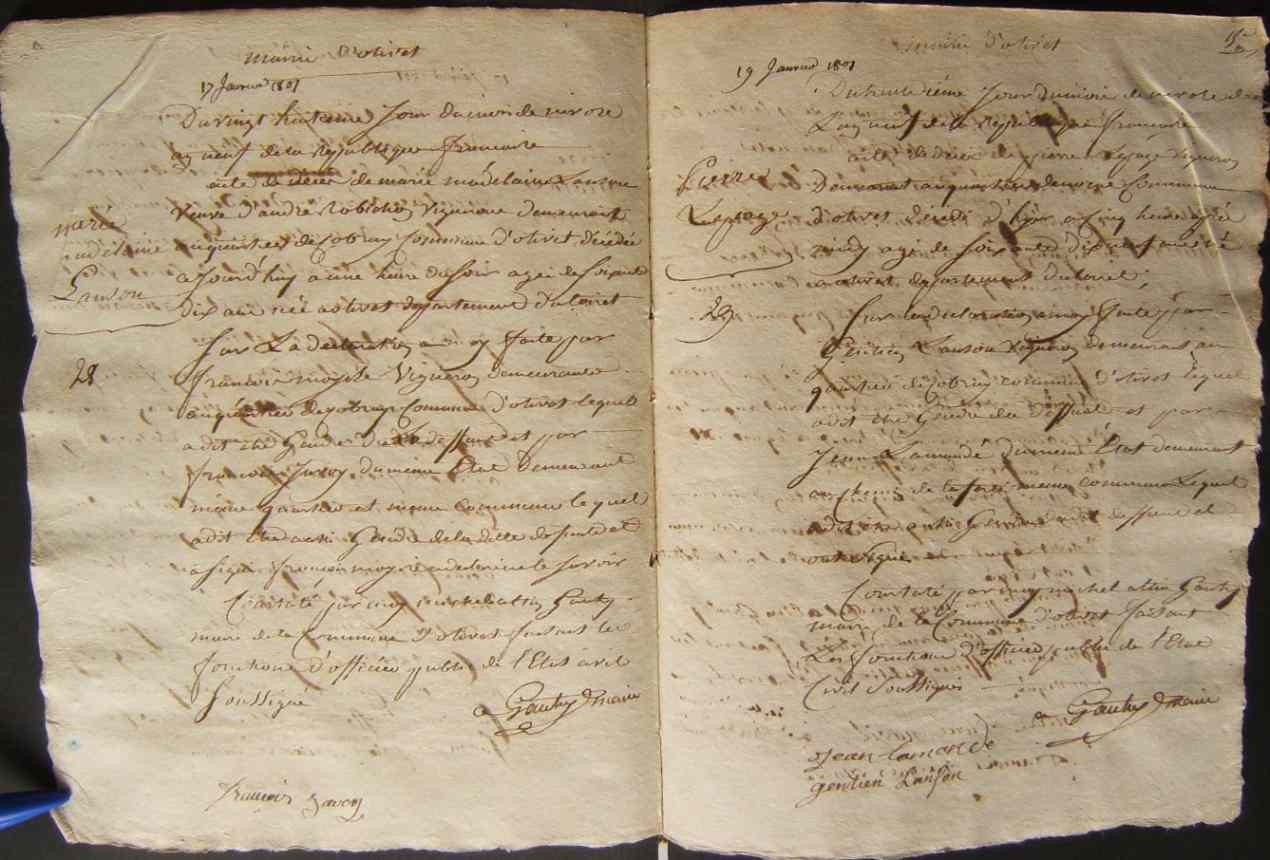 Mairie d'olivet
17 Janvier 1801
Du vingt huitieme Jour du mois de nivose
an neuf de la Republique francoise
acte de décès de marie madelaine Lanson
veuve d'andre Robichon vigneron demeurant
au quartier de Sobruy Commune d'olivet, décédée
a Jourd'huy a une heure du soir agée de soixante
dix ans née a olivet departement du Loiret
marie
madelaine
Lanson
28
Sur La declaration a moy faite par
francois vigneron demeurant
au quartier de Sobruy Commune d'olivet lequel
a dit etre Gendre de La deffunte et par
francois Javoy du meme Etat demeurant
meme quartier et meme commune lequel
a dit etre aussi Gendre de la ditte defunte et
a signé francois a declaré ne le savoir
Constaté par moy michel Gauthy
maire de la Commune d'olivet faisant les
fonctions d'officier public de l'Etat civil
Soussigné
Gauthy maire
francois Javoy
15
Mairie d'olivet
19 Janvier 1801
Du trentieme Jour du mois de nivose de
L'an neuf de la Republique francoise
acte de décès de pierre Lepage vigneron
demeurant au quartier commune
d'olivet décédé d'hier a cinq heure après
midy agé de soixante dix neuf ans né
a olivet departement du Loiret
pierre
Lepage
29
Sur la declaration a moy faite par
Gentien Lanson vigneron demeurant au
quartier de Sobruy commune d'olivet lequel
a dit etre Gendre du deffunt et par
Jean Lamandé du meme Etat demeurant
meme commune Lequel
a dit etre aussi Gendre du deffunt et
ont signé
Constaté par moy michel Gauthy
maire de la Commune d'olivet faisant
Les fonctions d'officier public de l'Etat
Civil Soussigné
Gauthy maire
Jean lamandé
gentien Lanson